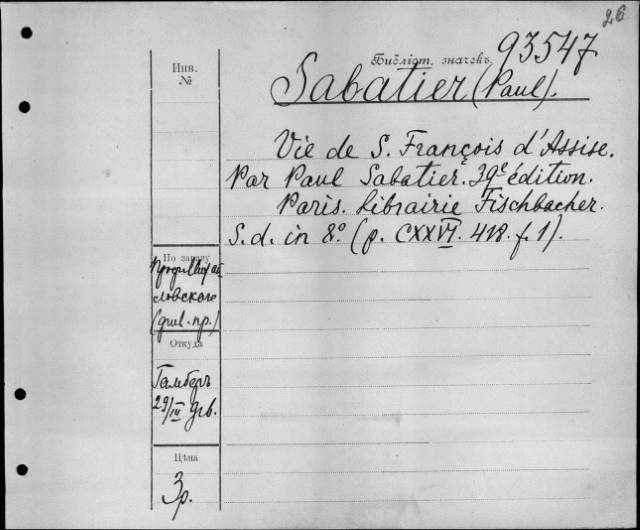 26
Инв.
№
Библіот. значекъ 93547
Sabatier (Paul).
Vie de S. François d'Assise.
Par Paul Sabatier. 39e édition.
Paris. Librairie Fischbacher.
S. d. in 8.º (p. CXXVI. 418. f. 1).
По заказу
ловскаго
Откуда
29/III
Цѣна
3 р.